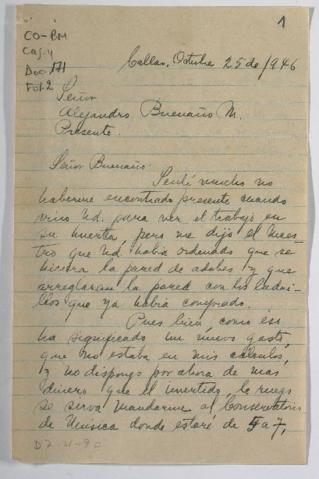 1
CO-BM
Caj. 4
Doc 171
Fol. 2
Callao, Octubre 25 de 1946
Señor
Alejandro Buenaño M.
Presente.
Señor Buenaño:
Sentí mucho no
haberme encontrado presente cuando
vino Ud. para ver el trabajo en
su huerta, pero me dijo el Maes-
tro que Ud. había ordenado que se
hiciera la pared de adobes y que
arreglaran la pared con los ladri-
llos que ya había comprado.
Pues bien, como eso
ha significado un nuevo gasto,
que no estaba en mis cálculos,
y no dispongo por ahora de mas
dinero que el invertido, le ruego
se sirva mandarme al Conservatorio
de Música donde estaré de 5 a 7,